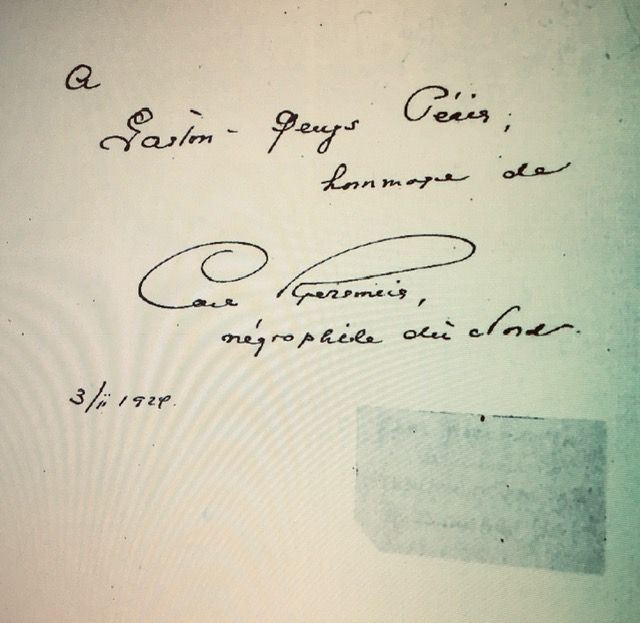 A
Gaston-Denys Périer,
hommage de
Carl Kjersmeier,
négrophile du Nord.
3/ii 1924.